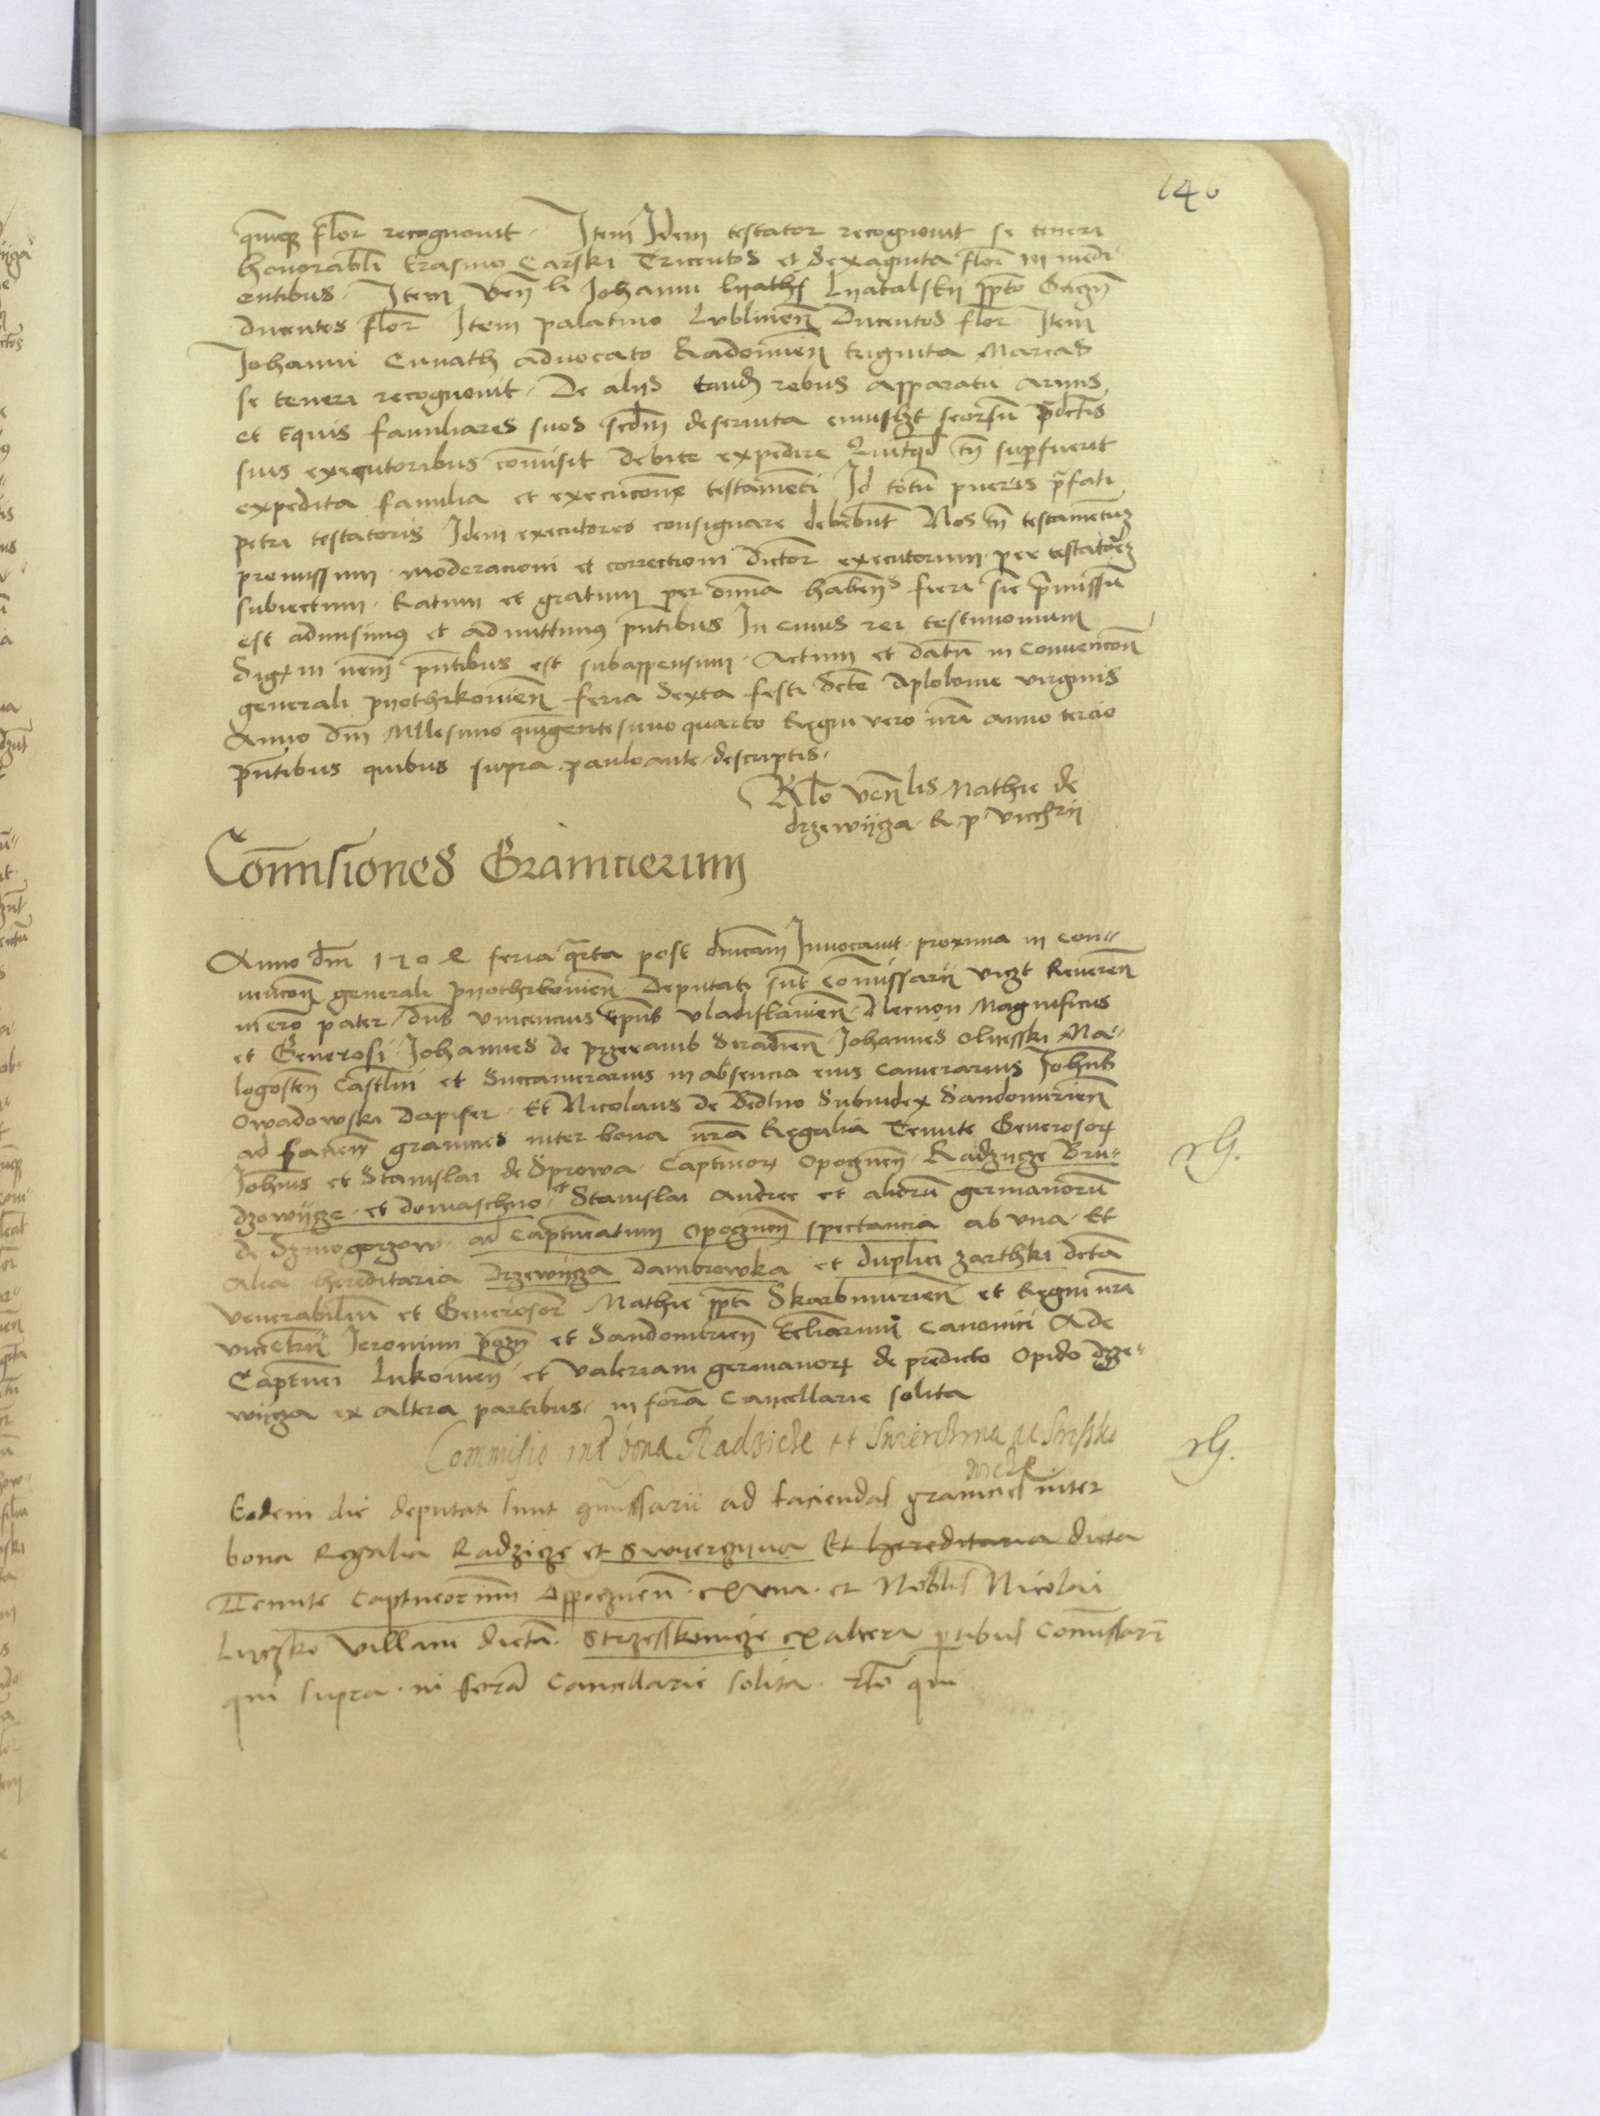 140
quinqz flor recognouit. Item Idem testator recognouit se teneri
honorabli Erasmo Carski Tricentos et Sexaginta flor in medi
entibus. Item Ven li Johanni Lyatalskij ppto Gnezn
Ducentos flor Item palatino Lublinen Ducentos flor Item
Johanni Cunath aduocato Radomien triginta Marcas
se teneri recognouit. De alijs tand rebus apparatu armis
et Equis familiares suos scdm deseruita seorsu pdctis
suis executoribus comisit debite expedire Quitqd tn supfuerit
expedita familia et execucone testameti Id totu pueris pfati
petri testatoris Idem executores consignare debebnt Nos tn testametuz
premissum moderacioni et correctioni dictor executorum per testatorez
subiectum. Ratum et gratum per omia habens fieri sic pmissu
est admisimus et admittimus pntibus In cuius rei testimonium
Sig m nrm pntibus est subappensum. Actum et datu in Conuencon
generali pyothrkouien feria Sexta festi scte Apolonie virginis
Anno dni Millesimo quingentesimo quarto Regni vero nri anno tercio
pntibus quibus supra paulo ante descriptis.
Rlo Venlis Mathie de
drzewijcza R. p. Viccrij
Comisiones Granicierum
Anno dni 1504 feria qrta post dnicam Inuocauit proxima in con-
uencon generali pyothrkouien Deputati sut comissarij viczt Reueren
in cro pater dns Vincencius Epus Vladislauien Necnon Magnificus
et Generosi Johannes de Przeramb Siradien Johannes Olyesski Ma-
logosten Castlni et Succamerarius in absencia eius Camerarius Johns
Owadowski Dapifer Et Nicolaus de Bedlno Subiudex Sandomirien
ad facien granicies inter bona nra Regalia Tenute Generosor
Johnis et Stanislai de Sprowa Captneor Opoznen Radzycze Bru-
dzowijcze et domaschno et Stanislai Andree et aliorum germanorum
de Szmogorzow ad Captneatum Opoznen spectancia ab vna Et
Alia hereditaria Drzewijcza Dambrowka et duplici zarthki dcta
venerabiliu et Generosor Mathie ppti Skarbimirien et Regni nri
vicecncrij Jeronimi pozn et Sandomirien Eccliarum Canonici Ade
Captnei Lukouien et Valeriani germanor de predicto Opido drze-
wijcza ex altera partibus in forma Cancellarie solita
rG.
Commisio int bona Radzicze et Swierczyna ac Strzesko
wicze
rG.
Eodem die deputati sunt comissarii ad faciendas granicies inter
bona Regalia Radzicze et Swyerczyna Et hereditaria dicta
Tenute Captneorum Oppoznen ex vna et Nobilis Nicolai
Lyczko villam dicta Strzeskowicze ex altera ptibus Comissarij
qui supra in forma Cancellarie solita. Rlo qui